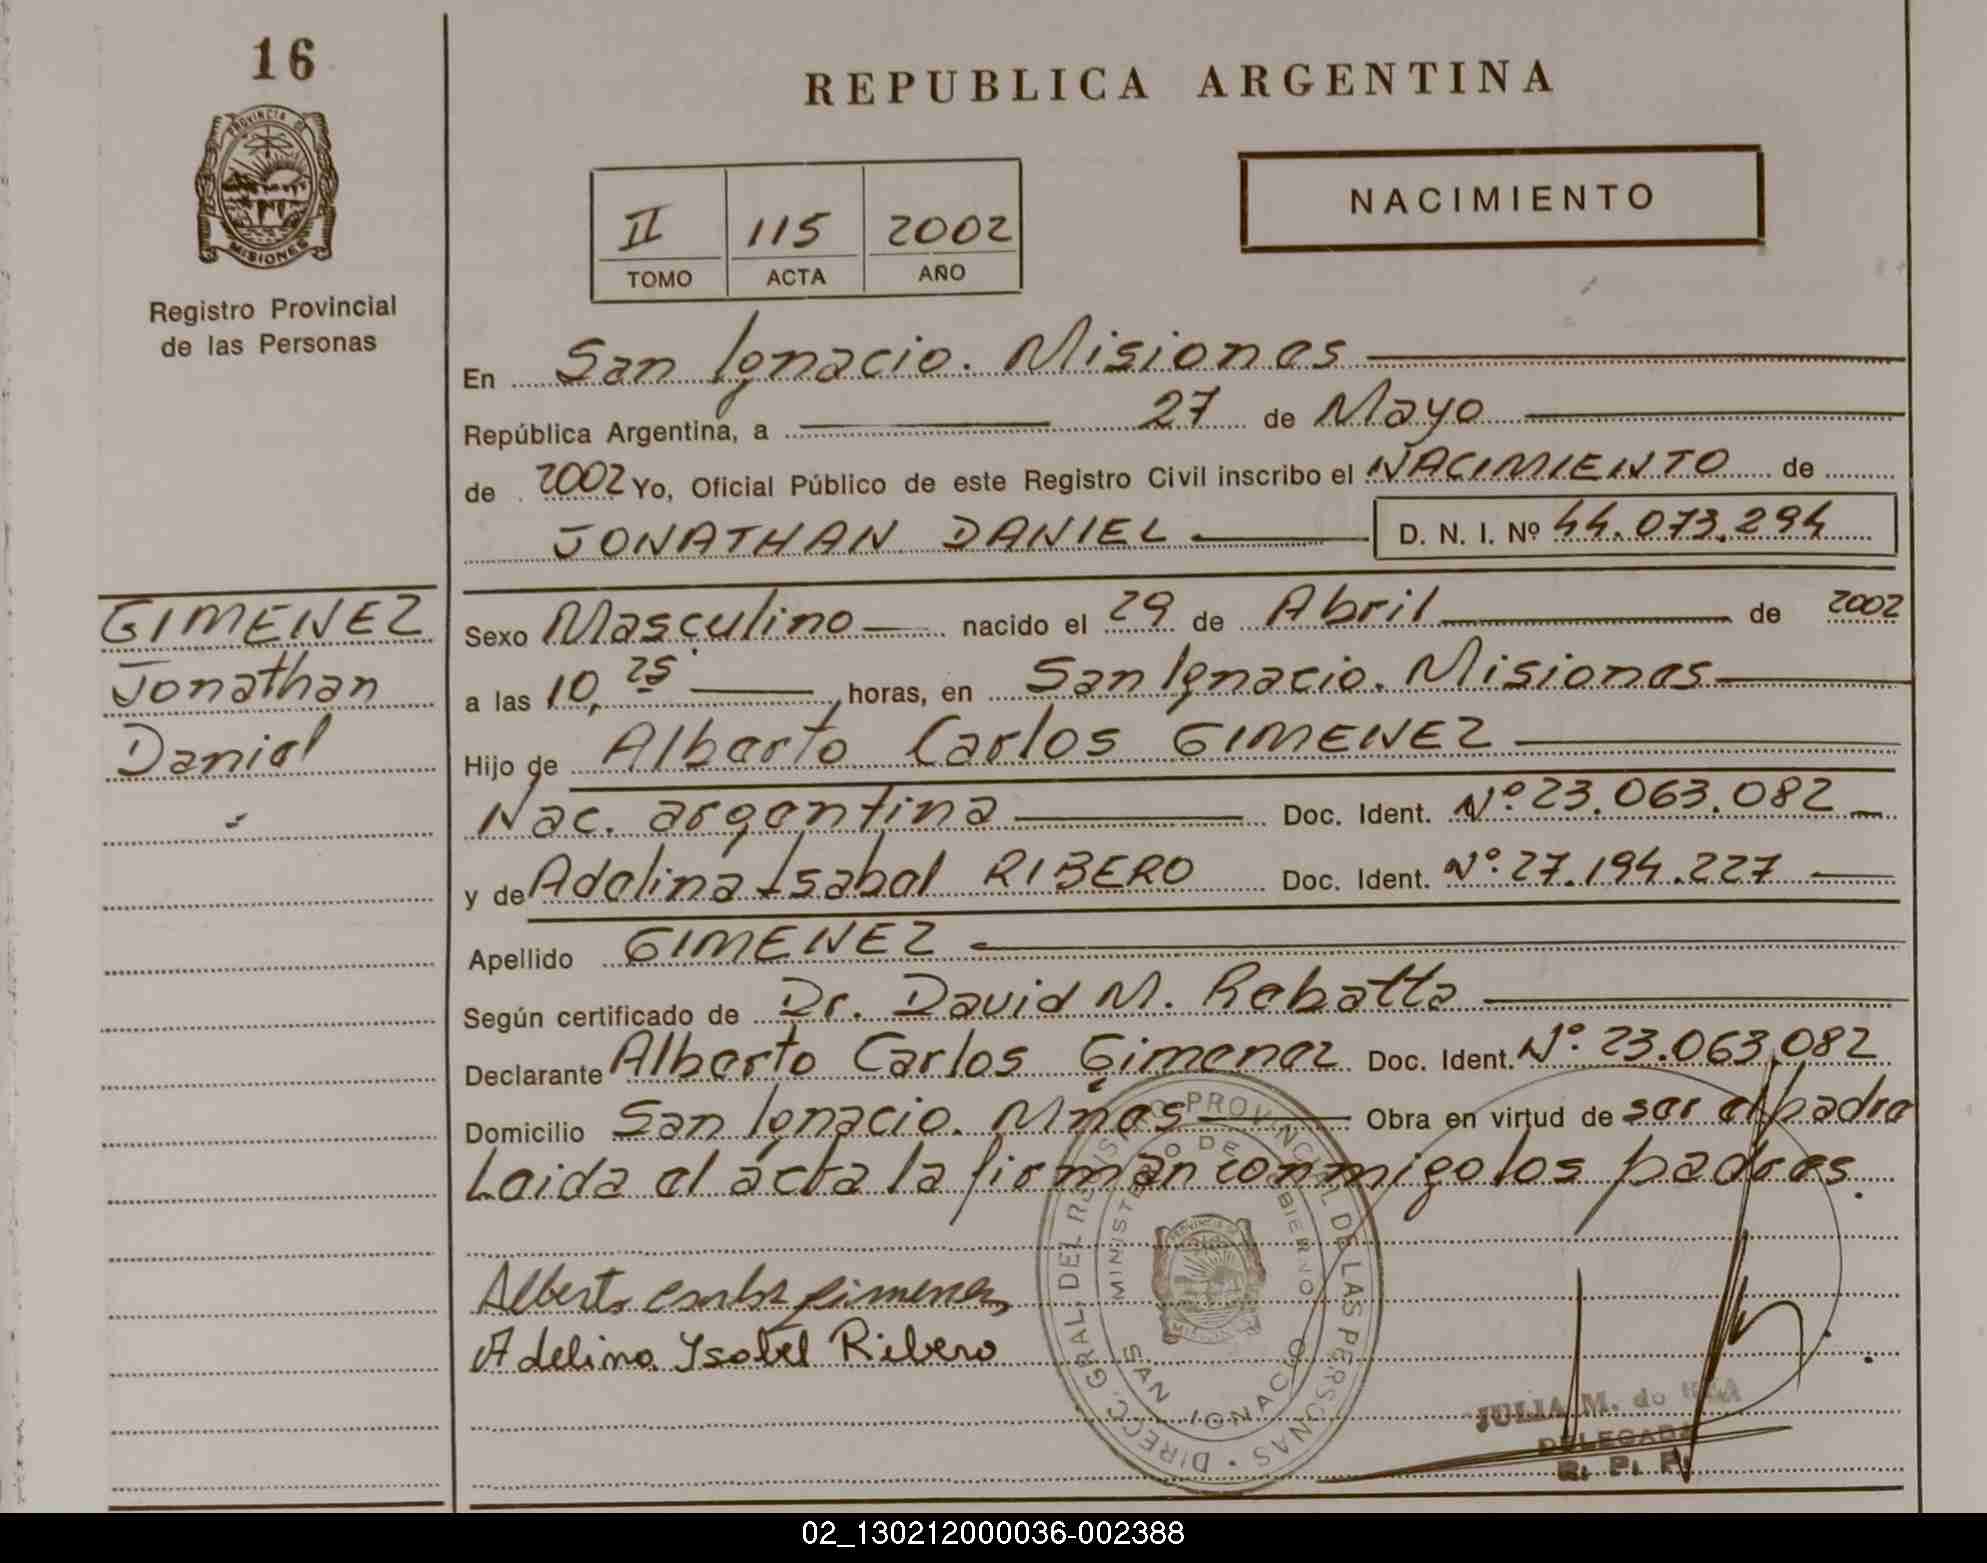 16
PROVINCIA DE
MISIONES
Registro Provincial
de las Personas
REPUBLICA ARGENTINA
II 115 2002
TOMO ACTA AÑO
NACIMIENTO
En San Ignacio. Misiones
República Argentina, a 27 de Mayo
de 2002 Yo, Oficial Público de este Registro Civil inscribo el NACIMIENTO de
JONATHAN DANIEL D. N. I. Nº 44.073.294
GIMENEZ
Jonathan
Daniel
Sexo Masculino nacido el 29 de Abril de 2002
a las 10,25 horas, en San Ignacio. Misiones
Hijo de Alberto Carlos GIMENEZ
Nac. argentina Doc. Ident. Nº 23.063.082
y de Adelina Isabel RIBERO Doc. Ident. Nº 27.194.227
Apellido GIMENEZ
Según certificado de Dr. David M. Rebatta
Declarante Alberto Carlos Gimenez Doc. Ident. Nº 23.063.082
Domicilio San Ignacio. Mnes Obra en virtud de ser el padre
Leida el acta la firman conmigo los padres.
Alberto Carlos Gimenez
Adelina Ysabel Ribero
DIRECC. GRAL. DEL REGISTRO PROVINCIAL DE LAS PERSONAS
MINISTERIO DE GOBIERNO
PROVINCIA DE
MISIONES
SAN IGNACIO
JULIA M. de
DELEGADA
R. P. P.
02_130212000036-002388